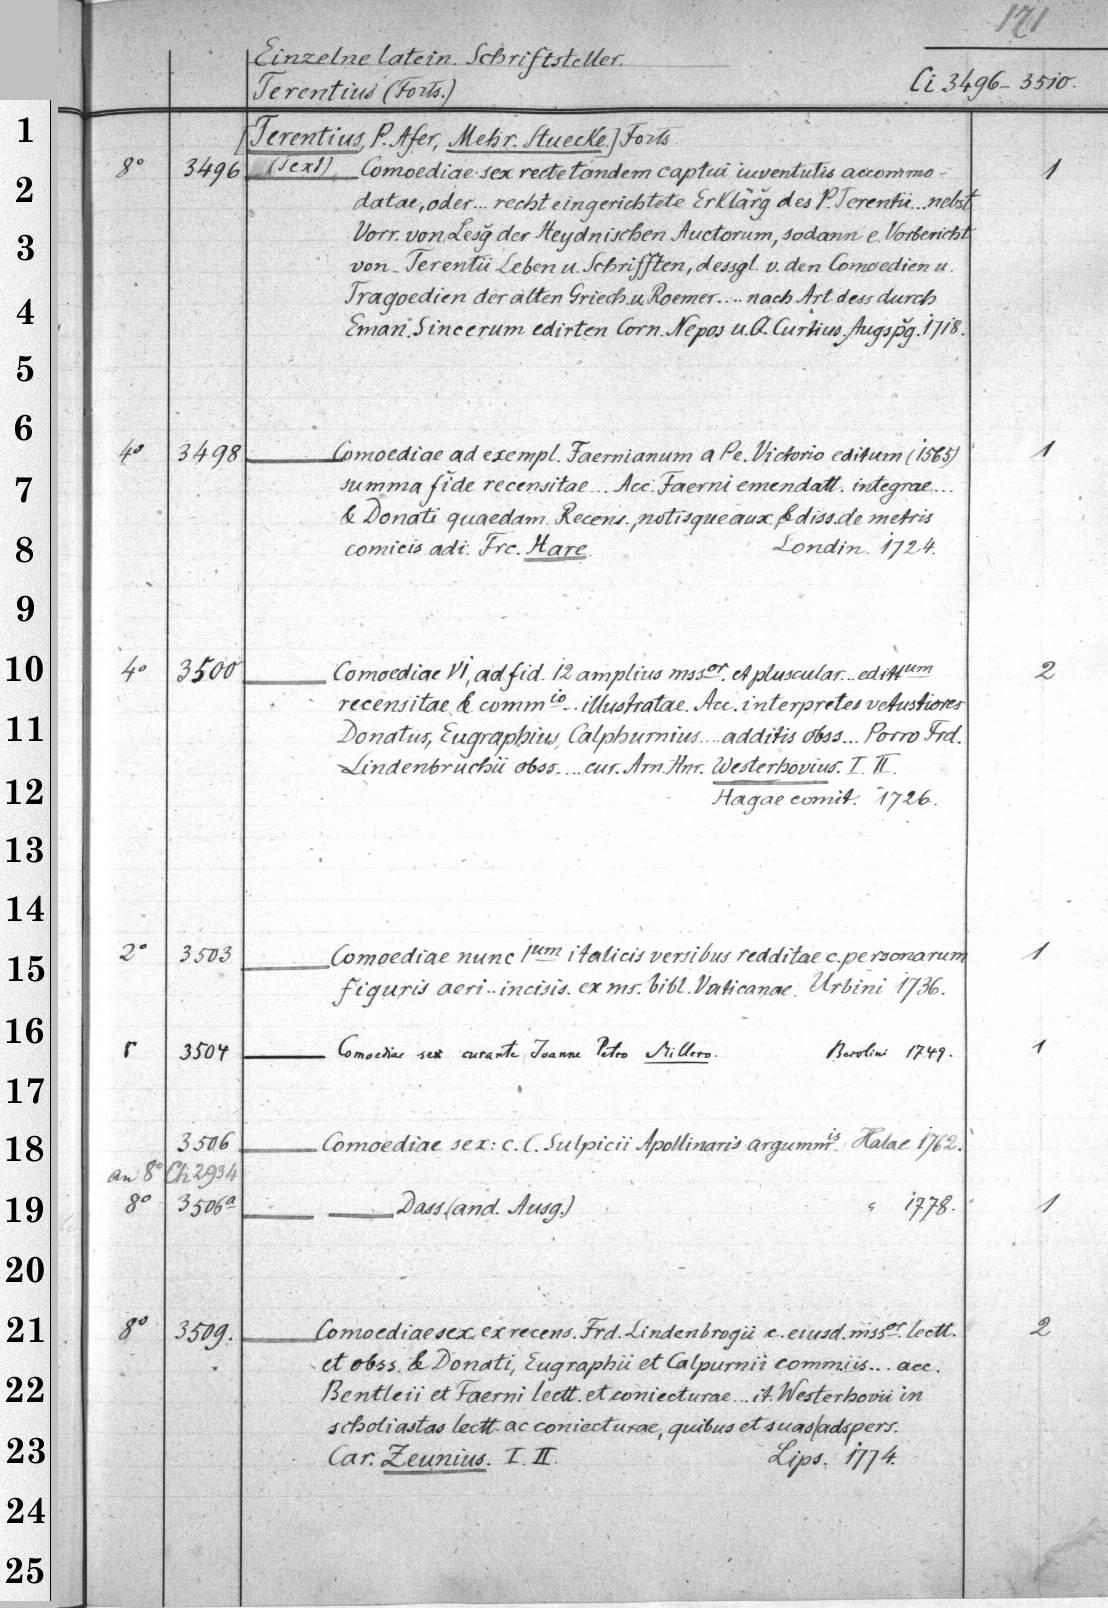 171
Einzelne latein. Schriftsteller.
Terentius (Forts.)
Ci 3496-3510.
1
[Terentius, P. Afer, Mehr. Stuecke.] Forts
8° 3496 (Text) Comoediae sex recte tandem captui iuventutis accommo- 1
2
datae, oder... recht eingerichtete Erklärg des P. Terentii... nebst
3
Vorr. von Lesg der Heydnischen Auctorum, sodann e. Vorbericht
von Terentii Leben u. Schrifften, dessgl. v. den Comoedien u.
4
Tragoedien der alten Griech. u. Roemer.... nach Art dess durch
Eman. Sincerum edirten Corn. Nepos u. Q. Curtius. Augspg. 1718.
5
6
4° 3498 Comoediae ad exempl. Faernianum a Pe. Victorio editum (1565) 1
7
summa fide recensitae... Acc. Faerni emendatt. integrae...
& Donati quaedam. Recens., notisque aux. & diss. de metris
8
comicis adi. Frc. Hare. Londin. 1724.
9
10
4° 3500 Comoediae VI, ad fid. 12 amplius mssor. et pluscular... edittum 2
recensitae & commio... illustratae. Acc. interpretes vetustiores
11
Donatus, Eugraphius, Calphurnius.... additis obss... Porro Frd.
Lindenbruchii obss.... cur. Arn. Hnr. Westerhovius. I. II.
12
Hagae comit. 1726.
13
14
15
2° 3503 Comoediae nunc 1um italicis versibus redditae c. personarum 1
figuris aeri.. incisis. ex ms. bibl. Vaticanae. Urbini 1736.
16
r 3504 Comoediae sex curante Joanne Petro Millero. Berolini 1749. 1
17
18
3506 Comoediae sex: c. C. Sulpicii Apollinaris argummis. Halae 1762.
an 8° Ch 2934
19
8° 3506a Dass. (and. Ausg.) " 1778. 1
20
21
8° 3509. Comoediae sex ex recens. Frd. Lindenbrogii c. eiusd. mssor. lectt. 2
et obss. & Donati, Eugraphii et Calpurnii commiis... acc.
22
Bentleii et Faerni lectt. et coniecturae... it. Westerhovii in
scholiastas lectt. ac coniecturae, quibus et suas adspers.
23
Car. Zeunius. I. II. Lips. 1774.
24
25